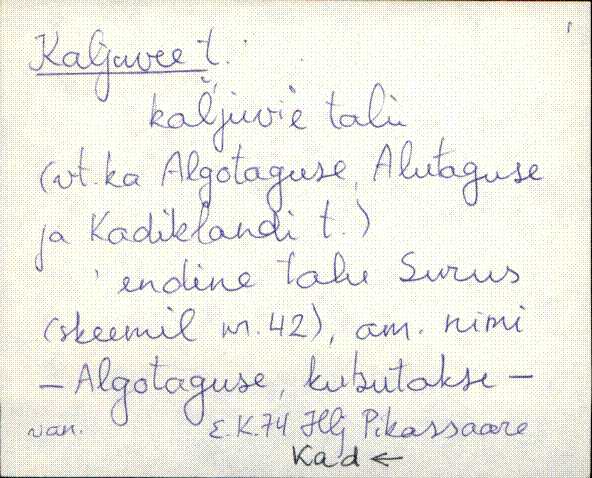 Kaljuvee t.
kaljuvie talu
(vt. ka Algotaguse, Alutaguse
ja Kadiklandi t.)
endine talu Surus
(skeemil nr. 42), am. nimi
- Algotaguse, kutsutakse -
van. E.K.74 HlJ Pikassaare
Kad ←